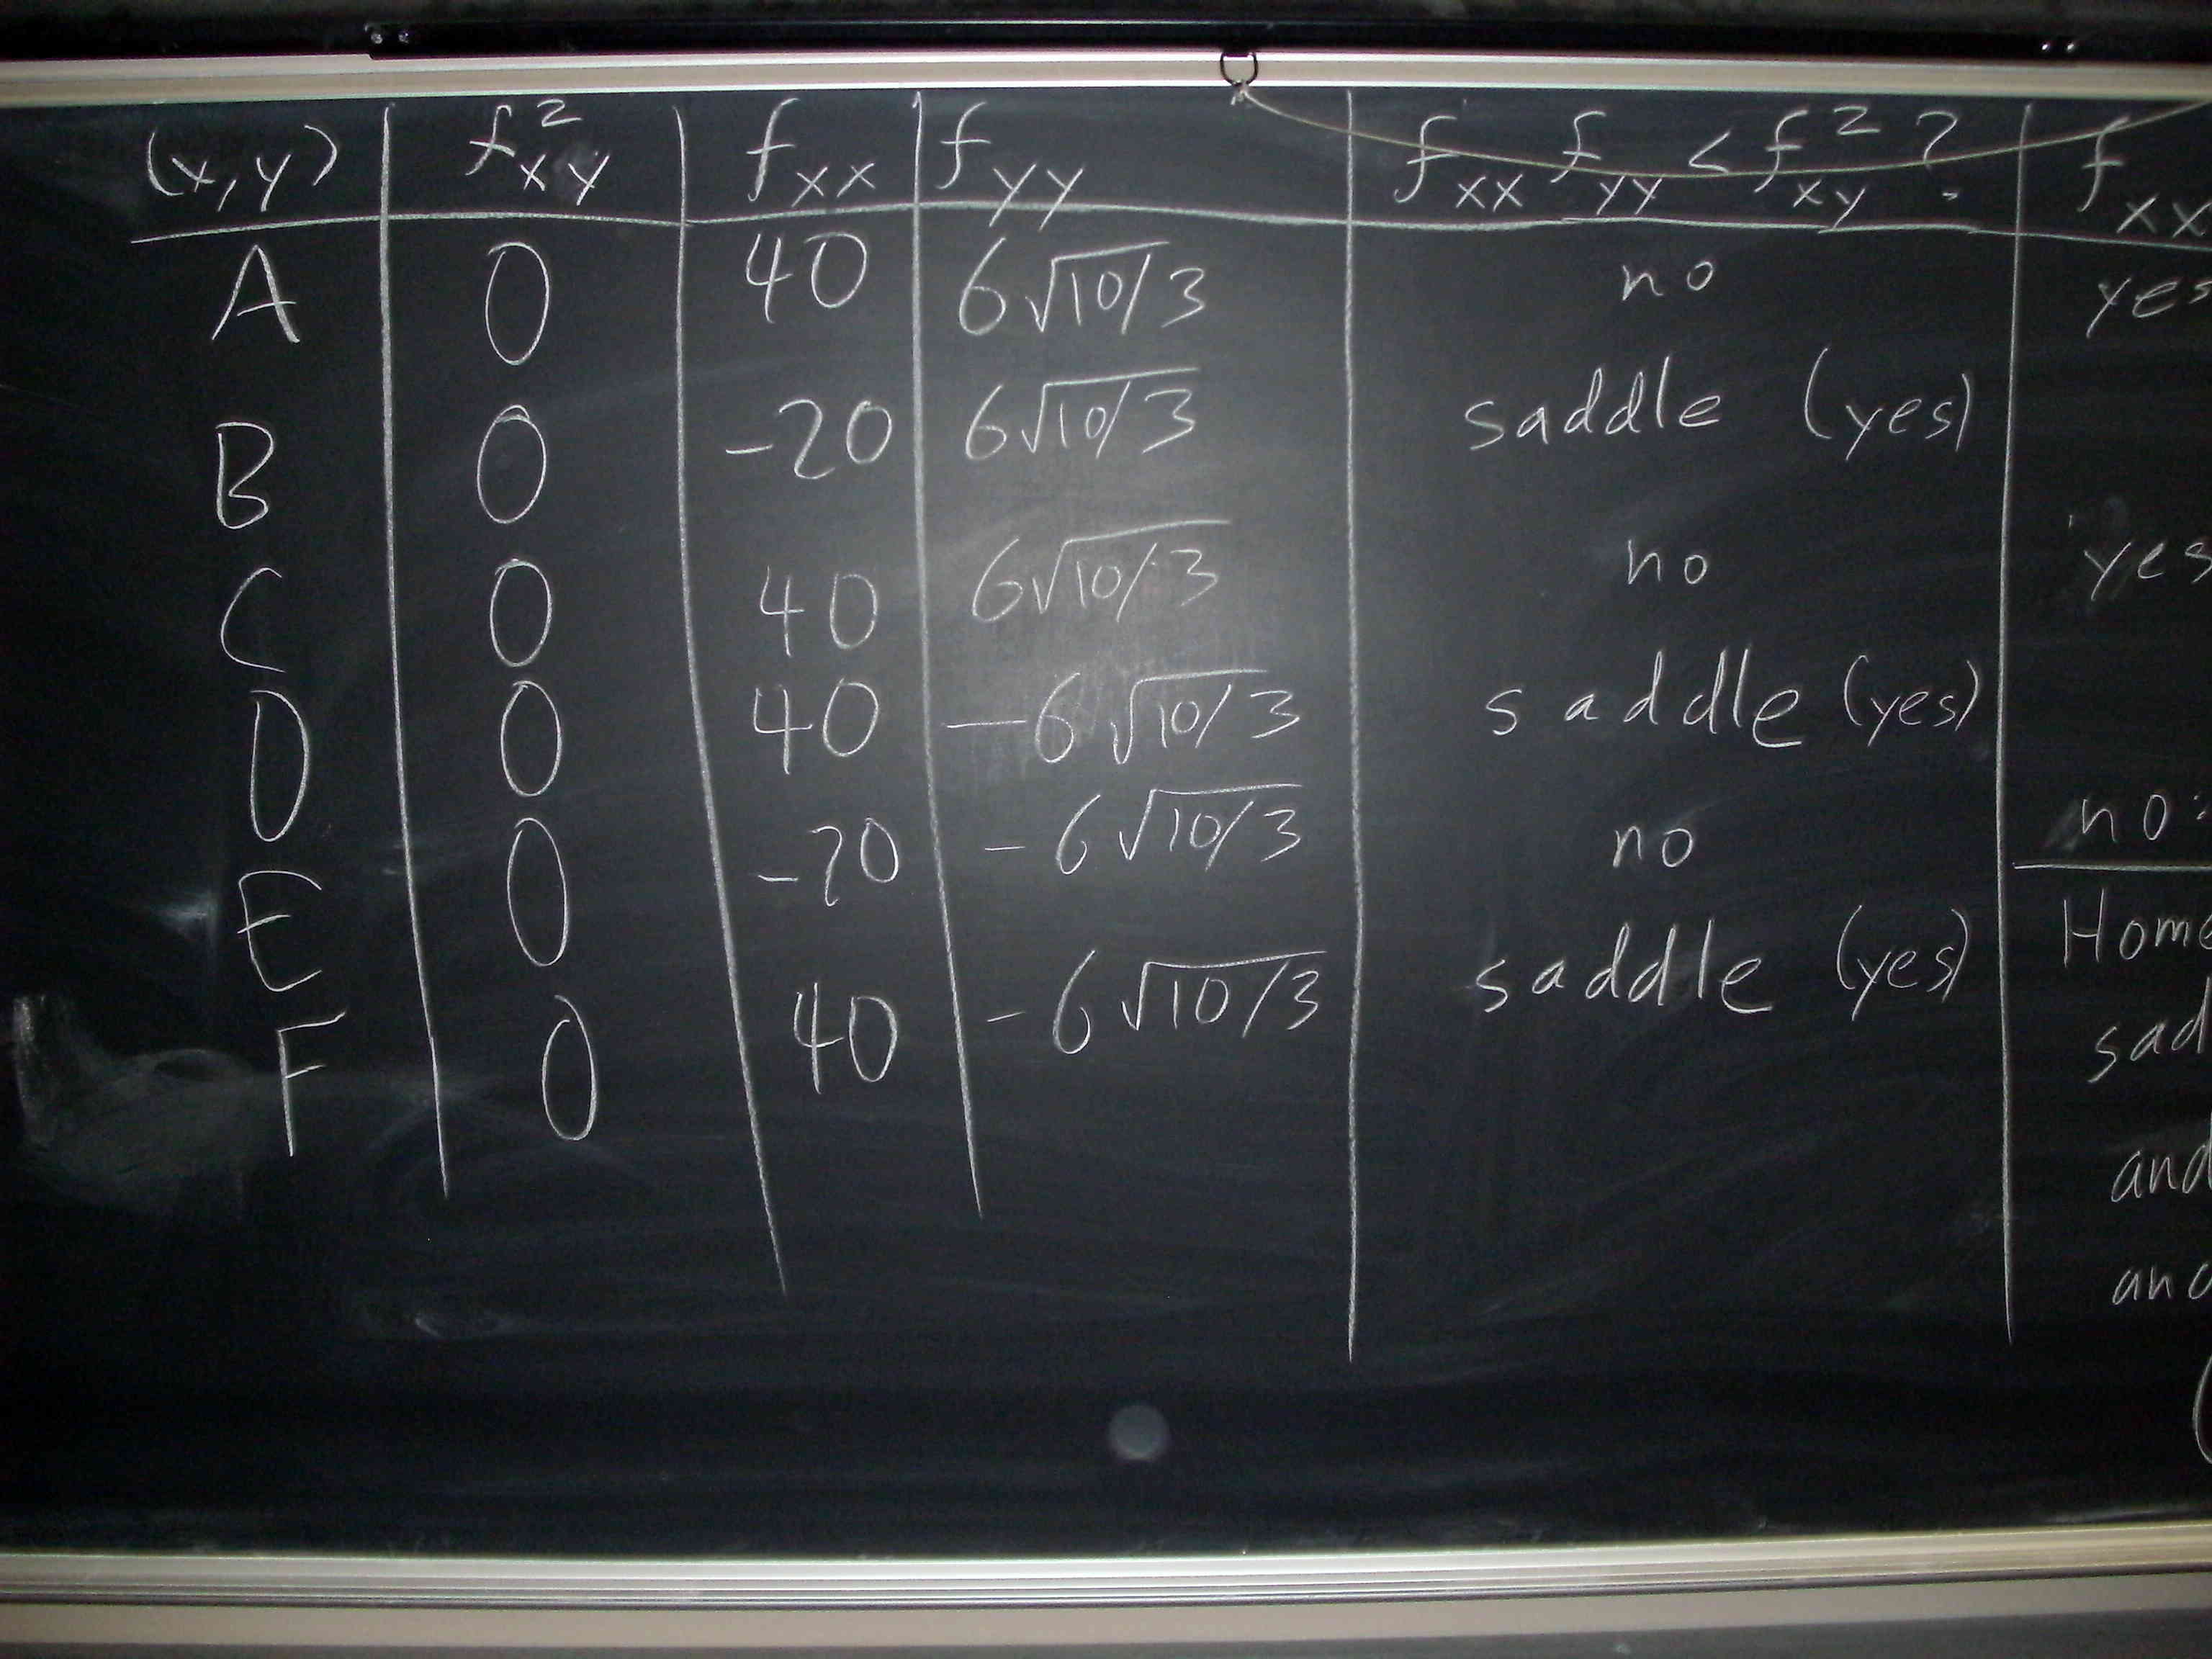 (x,y) f²xy fxx fyy fxx fyy < f²xy ? fxx
A 0 40 6√10/3 no yes
B 0 -20 6√10/3 saddle (yes)
C 0 40 6√10/3 no yes
D 0 40 -6√10/3 saddle (yes)
E 0 -20 -6√10/3 no no:
F 0 40 -6√10/3 saddle (yes)
Home
sad
and
and